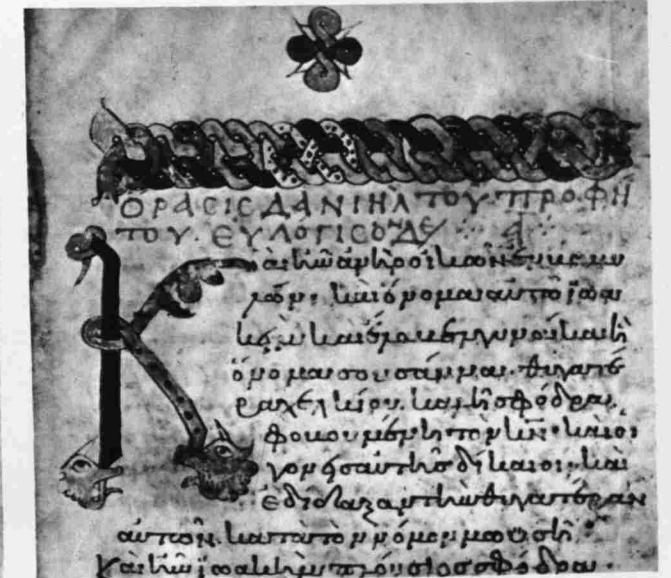 ΟΡΑΣΙΣ ΔΑΝΙΗΛ ΤΟΥ ΠΡΟΦΗ
ΤΟΥ. ΕΥΛΟΓΙΣΟΝ ΔΕ
Καὶ ἦν ἀνὴρ οἰκῶν ἐν βαβυ
λῶνι· καὶ ὄνομα αὐτῷ ἰωα
καὶ ἔλαβεν γυναῖκα ἧ
ὄνομα σουσάννα· θυγατέ
ρα χελκίου. καλὴ σφόδρα.
φοβουμένη τὸν κ̅ν̅· καὶ οἱ
γονεῖς αὐτῆς δίκαιοι· καὶ
ἐδίδαξαν τὴν θυγατέραν
αὐτῶν. κατὰ τὸν νόμον μωσῆ:
Καὶ ἦν ἰωακὴμ πλούσιος σφόδρα·